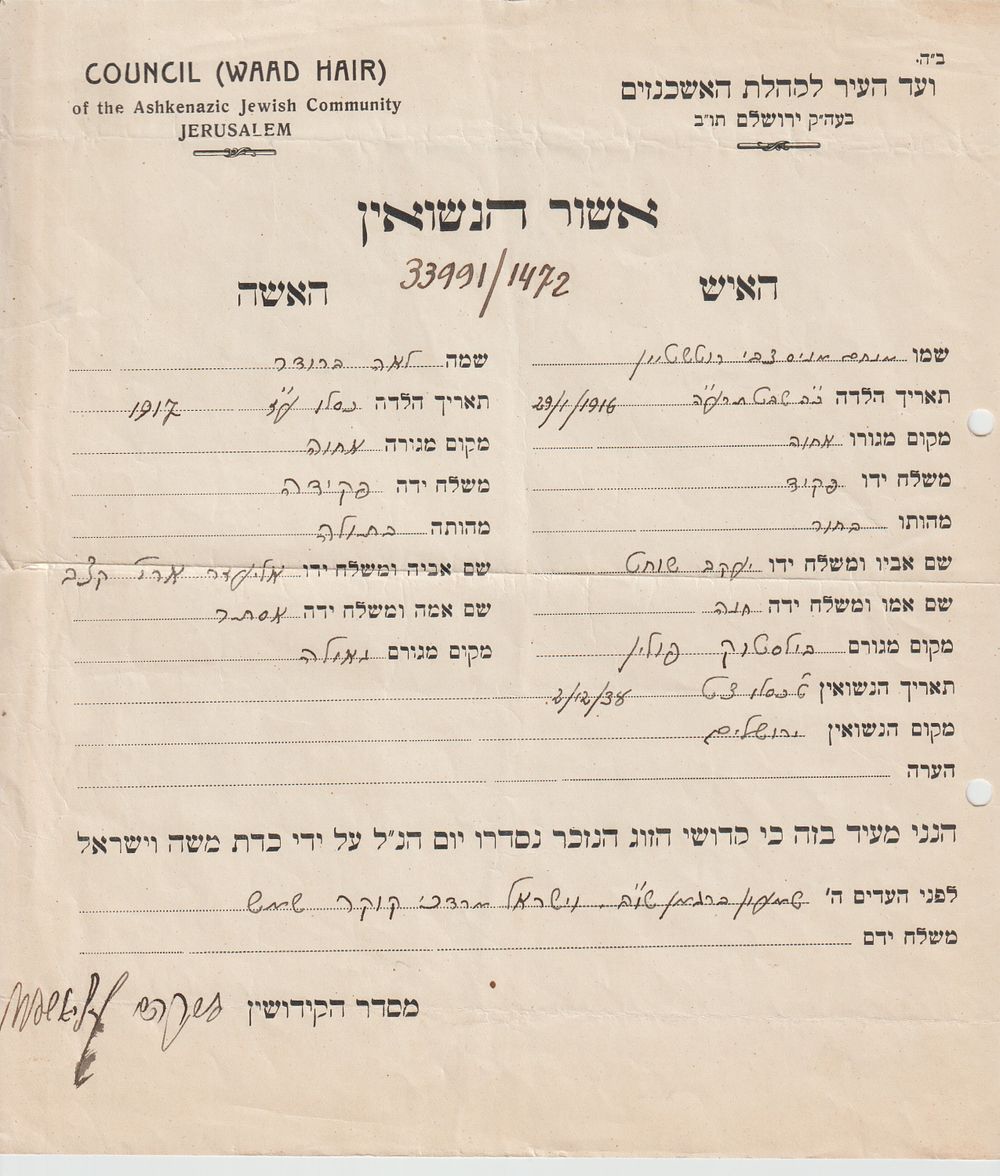 ב״ה.
COUNCIL (WAAD HAIR)
of the Ashkenazic Jewish Community
JERUSALEM
ועד העיר לקהלת האשכנזים
בעה״ק ירושלם תו״ב
אשור הנשואין
33991/1472
האיש
שמו מנחם צבי רוטשטיין
תאריך הלדה כ״ה שבט תרע״ו 29/1/1916
מקום מגורו אחוה
משלח ידו פקיד
מהותו בחור
שם אביו ומשלח ידו יעקב שוחט
שם אמו ומשלח ידה חנה
מקום מגורם בילסטוק פולין
האשה
שמה לאה ברודר
תאריך הלדה כסלו ע״ז 1917
מקום מגורה אחוה
משלח ידה פקידה
מהותה בתולה
שם אביה ומשלח ידו אליעזר ארי׳ קצב
שם אמה ומשלח ידה אסתר
מקום מגורם גאולה
תאריך הנשואין ט׳ כסלו צ״ט 2/12/38
מקום הנשואין ירושלים
הערה
הנני מעיד בזה כי קדושי הזוג הנזכר נסדרו יום הנ״ל על ידי כדת משה וישראל
לפני העדים ה' שמעון ברגמן שו״ב. וישראל מרדכי קוקר שמש
משלח ידם
מסדר הקידושין